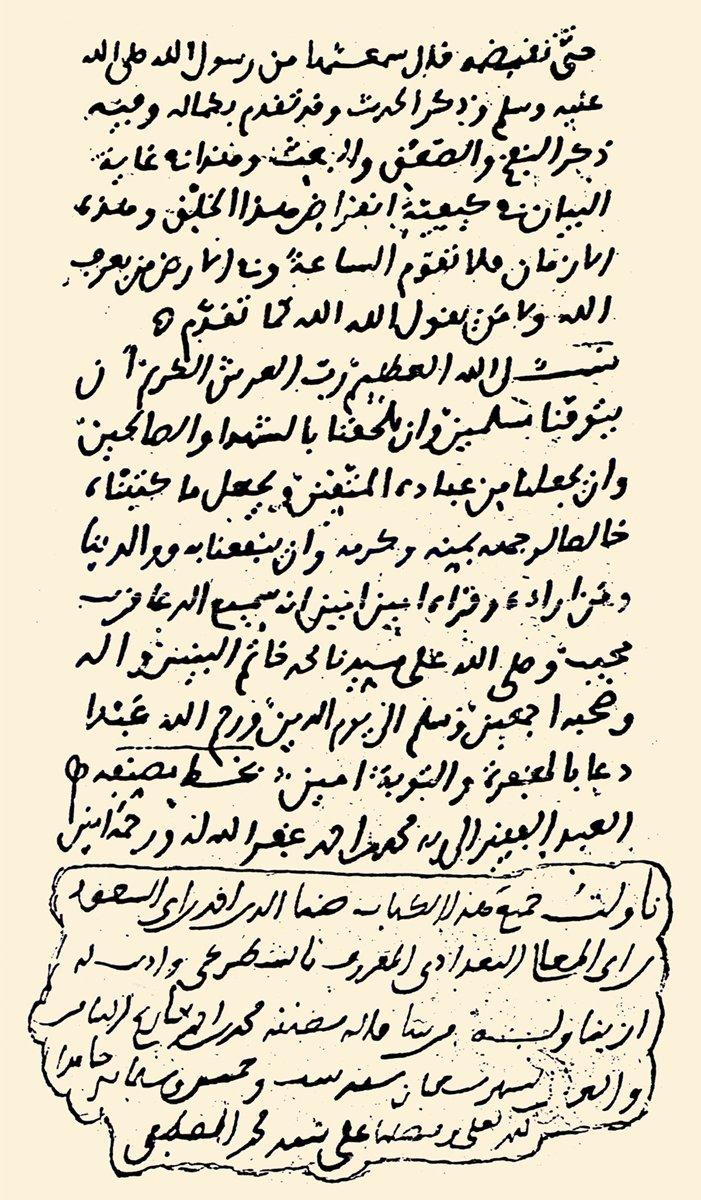 حتى نقبضه قال سمعتها من رسول الله صلى الله
عليه وسلم وذكر الحديث وقد تقدم بكماله وفيه
ذكر النفخ والصعق والبعث وهذا فيه غاية
البيان في كيفية انقراض هذا الخلق وهذه
الازمان فلا تقوم الساعة وفي الارض من يعرف
الله ولا من يقول الله الله كما تقدم
نسئل الله العظيم رب العرش الكريم ان
يتوفنا مسلمين وان يلحقنا بالشهدا والصالحين
وان يجعلنا من عباده المتقين ويجعل ما كتبناه
خالصا لوجهه بمنه وكرمه وان ينفعنا به ووالدينا
ومن اراده وقراه امين امين انه سميع الدعا قريب
مجيب وصلى الله على سيدنا محمد خاتم النبيين واله
وصحبه اجمعين وسلم الى يوم الدين ورحم الله عبدا
دعا بالمغفرة والتوبة امين بخط مصنفه
العبد الفقير الى ربه محمد بن احمد غفر الله له ورحمه امين
ناولت جميع هذا الكتاب
البغدادي المعروف واذنت له
ان يناوله قاله مصنفه محمد بن احمد بتاريخ الثامن
والعشر لشهر شعبان سنة ست وخمسين وستماية حامدا
لله تعلى ومصليا على نبيه محمد المصطفى